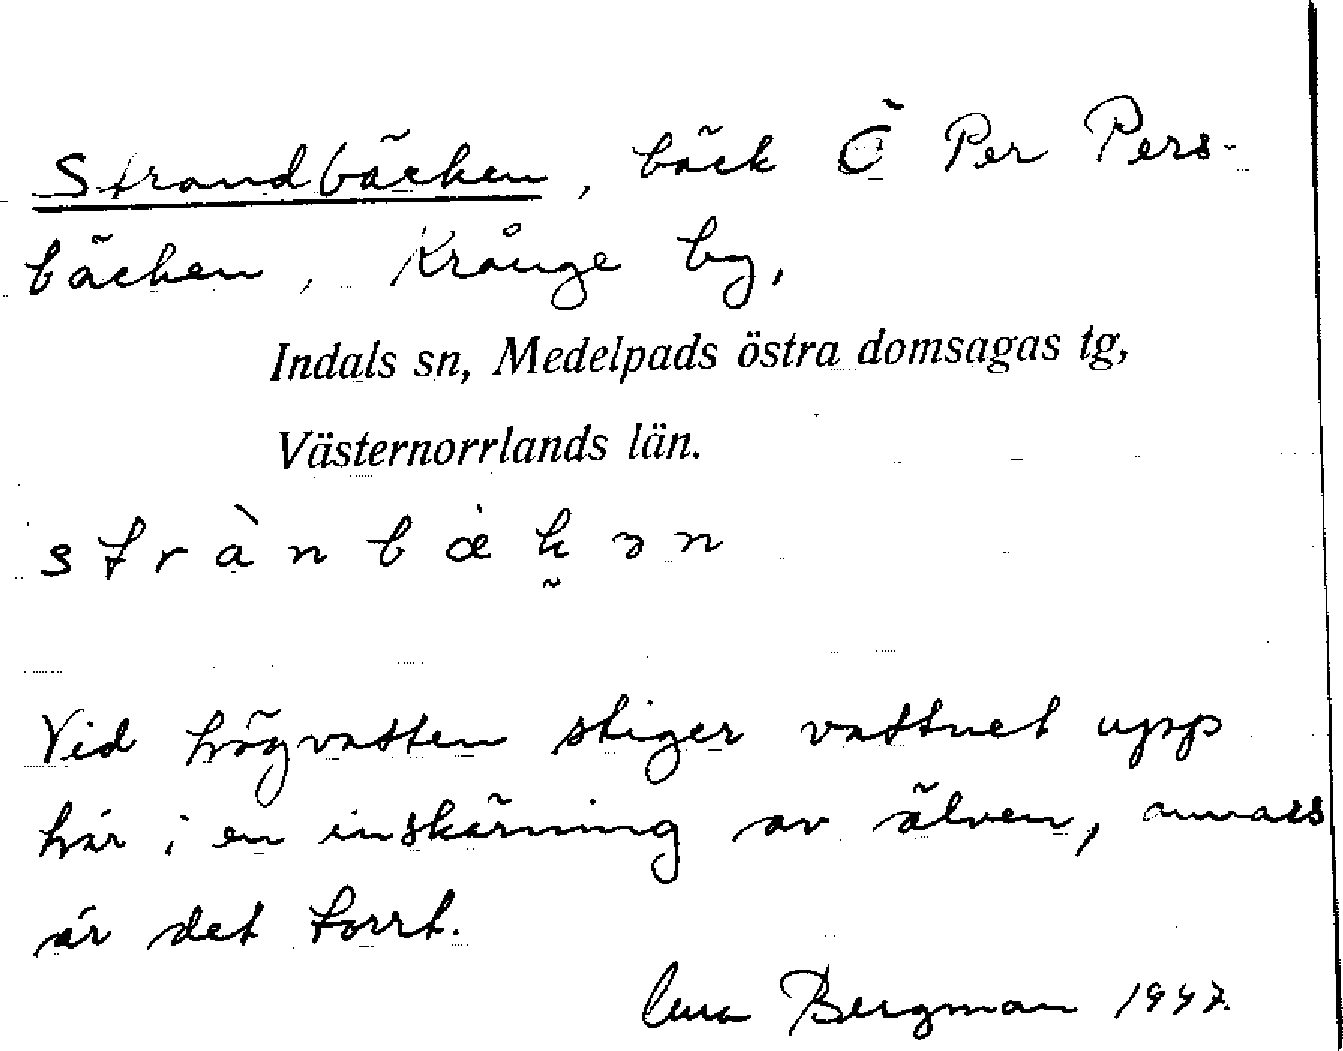 Strandbäcken, bäck Ö Per Pers-
bäcken, Krånge by,
Indals sn, Medelpads östra domsagas tg,
Västernorrlands län.
strànbæ̀k̰ən
Vid högvatten stiger vattnet upp
här i en inskärning av älven, annars
är det torrt.
Bergman 1947.